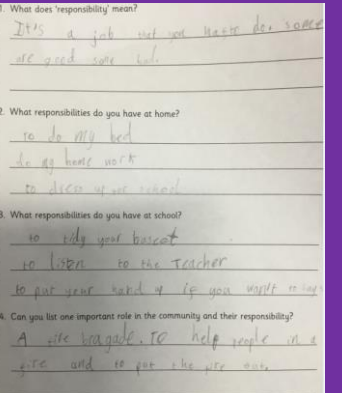 1. What does 'responsibility' mean?
It's a job that you have to do. some
are good some bad.
2. What responsibilities do you have at home?
to do my bed
do my home work
to dress up for school
3. What responsibilities do you have at school?
to tidy your
to listen to the Teacher
to put your hand up if you want to
4. Can you list one important role in the community and their responsibility?
A fire bragade. To help people in a
fire and to put the out.